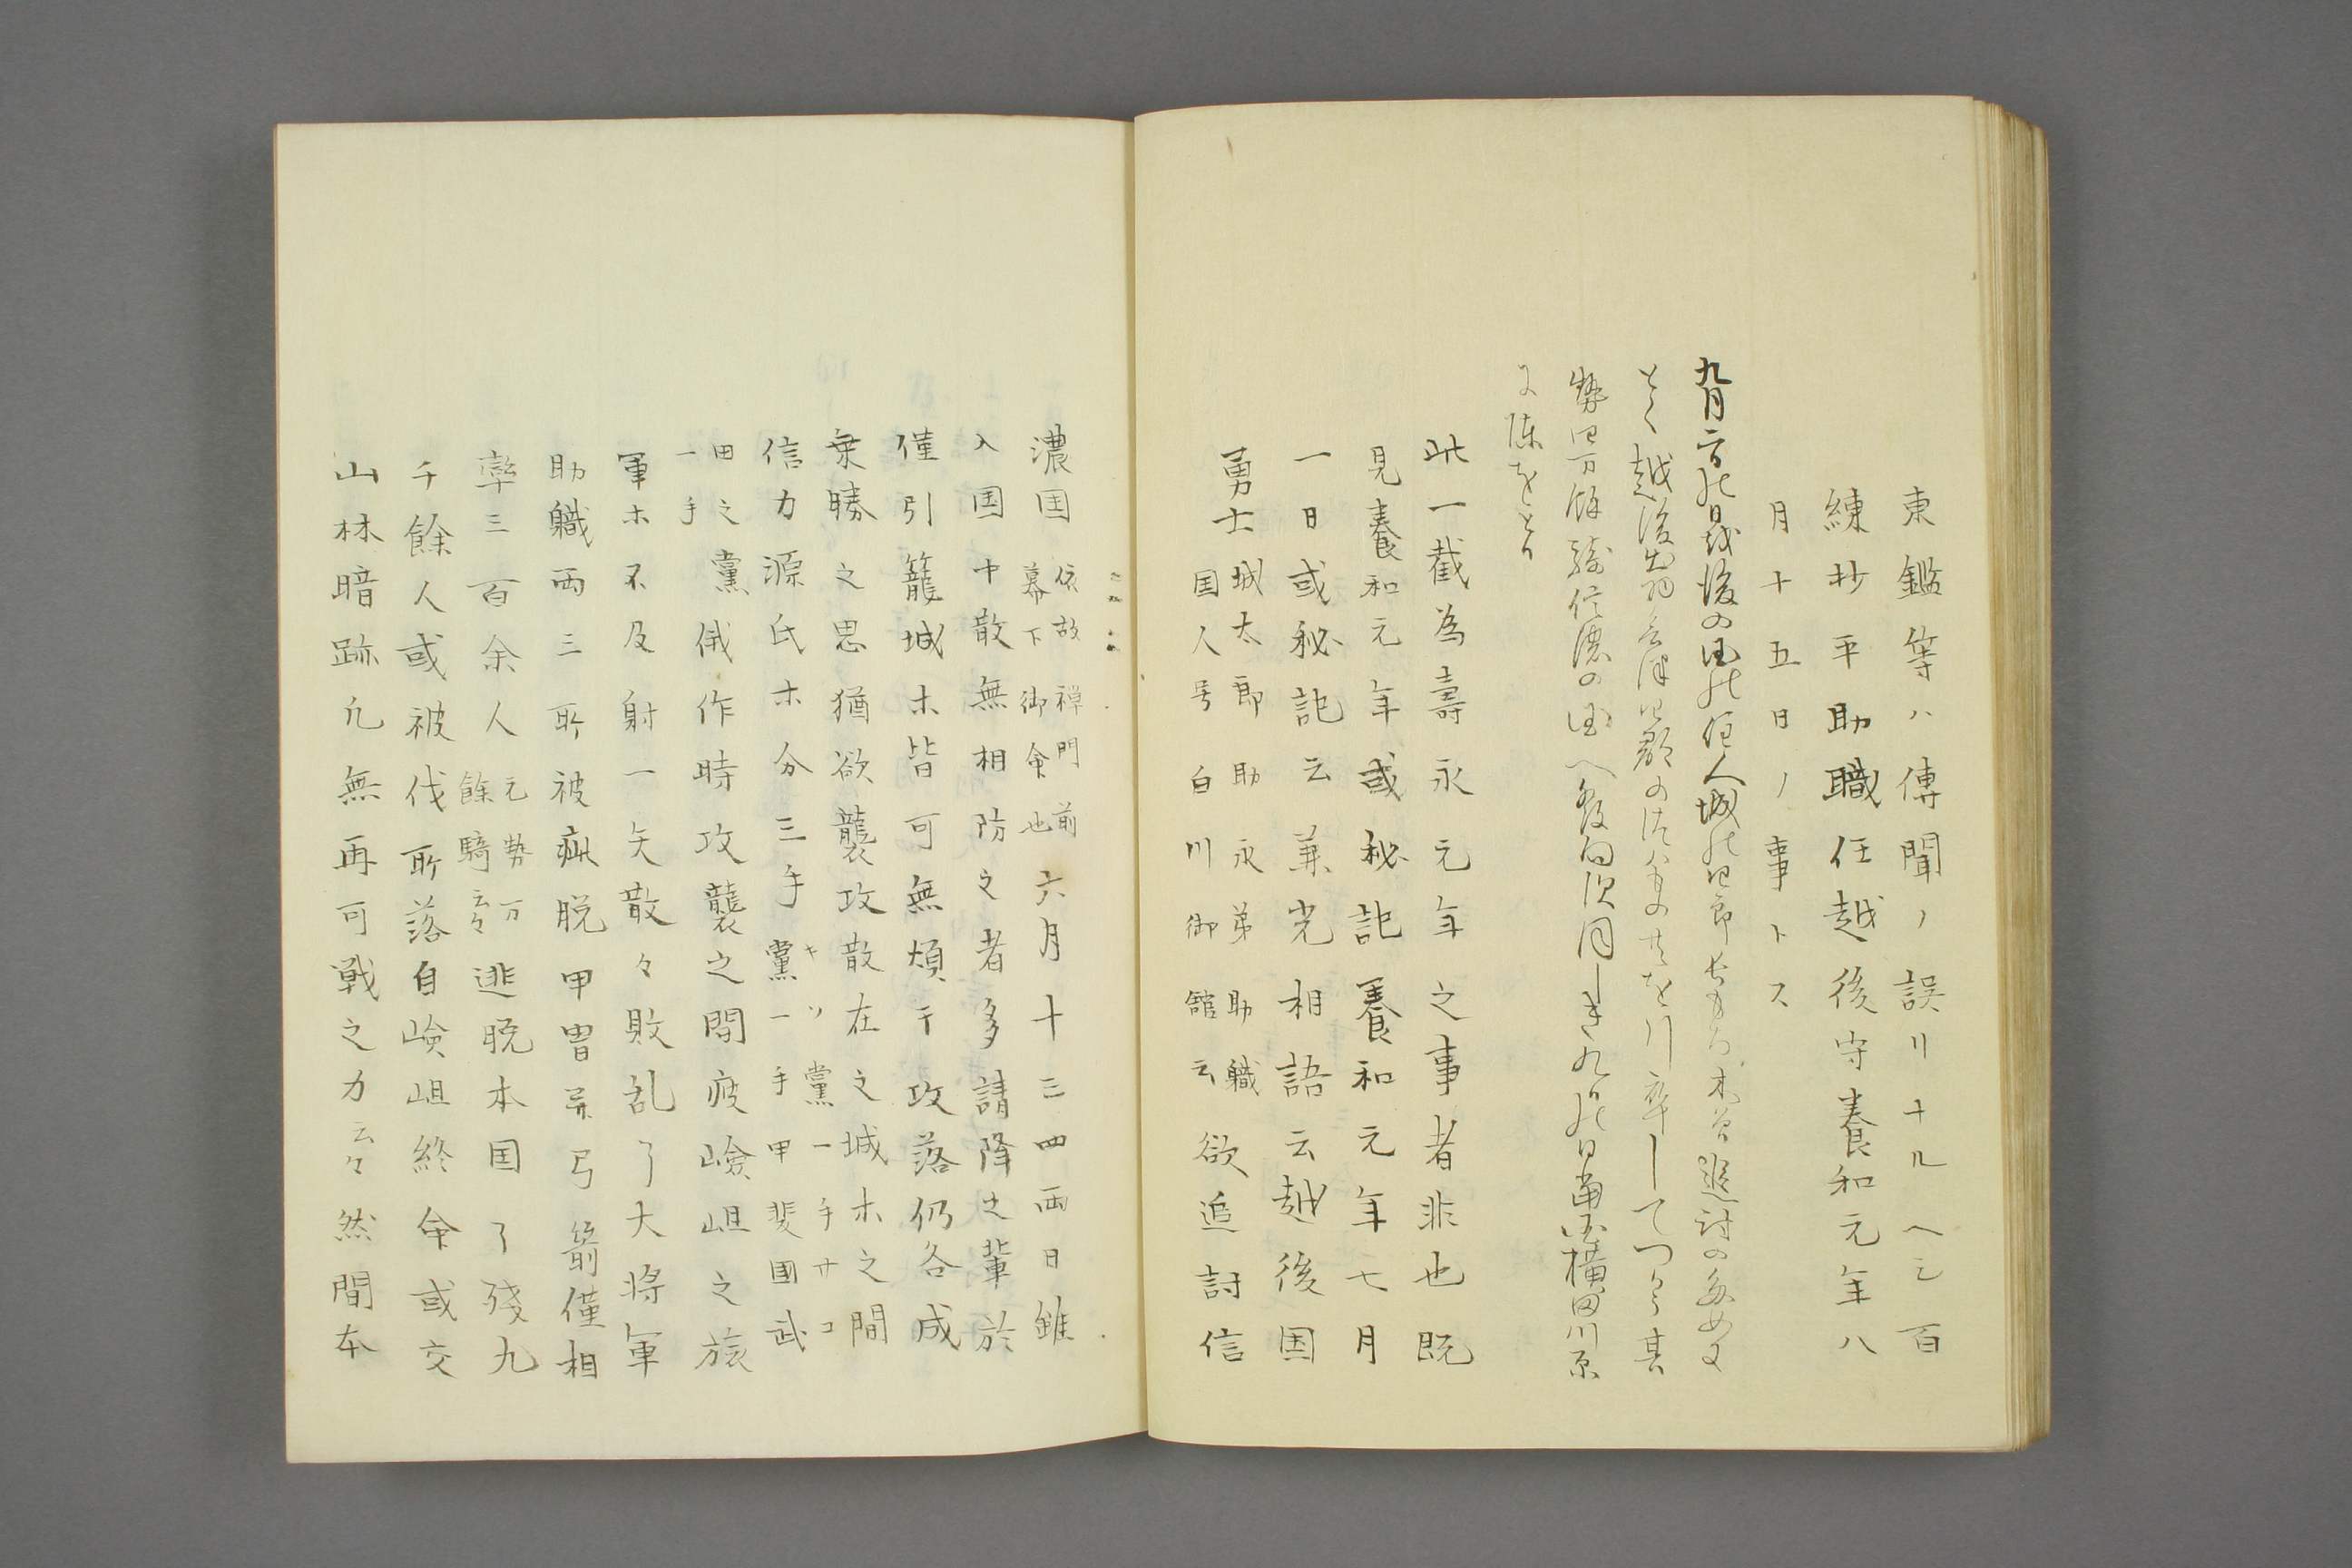 東鑑等ハ傳聞ノ誤リナルヘシ百
練抄平助職任越後守養和元年八
月十五日ノ事トス
九月二日越後の国の住人城の四郎長茂木曽追討のために
とて越後出羽会津四郡の兵ともを引率してつかう其
勢四万餘騎信濃の国へ発向次同しき九の日当国横田川原
に陳をとる
此一截為壽永元年之事者非也既
見養和元年或秘記養和元年七月
一日或秘記云兼光相語云越後国
勇士城太郎助永弟助職
国人号白川御館云欲追討信
濃国依故禅門前
幕下御命也六月十三四両日雖
入国中散無相防之者多請降之輩於
僅引籠城ホ皆可無煩于攻落仍各成
乗勝之思猶欲襲攻散在之城ホ之間
信力源氏ホ分三手キソ黨一手サコ
黨一手甲斐國武
田之
一手黨俄作時攻襲之間疲嶮岨之旅
軍ホ不及射一矢散々敗乱了大将軍
助職両三所被疵脱甲冑弃弓箭僅相
率三百余人元勢万
餘騎云々逃脱本国了残九
千餘人或被伐取落自嶮岨終命或交
山林暗跡凢無再可戦之力云々然間本